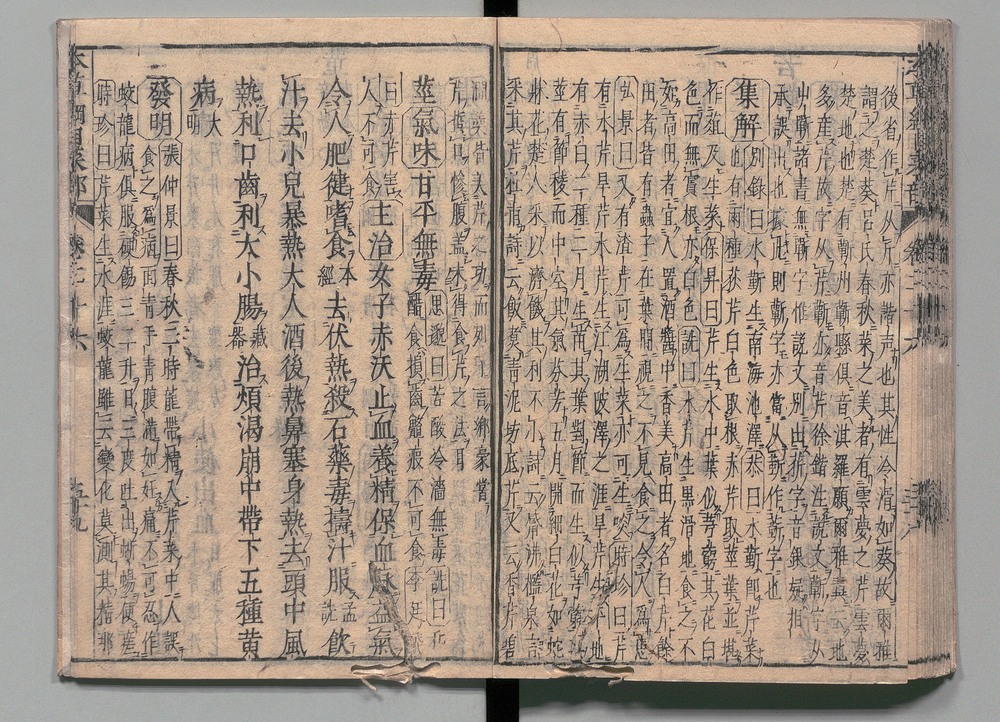 後省作芹从斤亦諧声也其性冷滑如葵故爾雅
謂之楚葵呂氏春秋菜之美者有雲夢之芹雲夢
楚地也楚有蘄州蘄縣俱音淇羅願爾雅翼云地
多産芹故字从芹蘄亦音芹徐鍇注說文蘄字从
艸蘄諸書無蘄字惟說文別出䓄字音銀疑相
承誤出也據此則蘄字亦當从靳作蘄字也
集解別錄曰水蘄生南海池澤恭曰水蘄卽芹菜
也有兩種荻芹白色取根赤芹取莖葉並堪
作菹及生菜保昇曰芹生水中葉似芎藭其花白
色而無實根亦白色詵曰水芹生黑滑地食之不
如高田者宜人置酒醬中香美高田者名白芹餘
田者皆有蟲子在葉間視之不見食之令人爲患
弘景曰又有渣芹可爲生菜亦可生啖時珍曰芹
有水芹旱芹水芹生江湖陂澤之涯旱芹生平地
有赤白二種二月生苗其葉對節而生似芎藭其
莖有節稜而中空其氣芬芳五月開細白花如蛇
牀花楚人采以濟饑其利不小詩云觱沸檻泉言
采其芹杜甫詩云飯煮青泥坊底芹又云香芹碧
澗羹皆美芹之功而列子言鄉豪嘗
芹蜇口慘腹蓋未得食芹之法耳
莖氣味甘平無毒思邈曰苦酸冷濇無毒詵曰和
醋食損齒鱉瘕不可食李廷飛
曰赤芹害人不可食主治女子赤沃止血養精保血脉益氣
令人肥健嗜食本經去伏熱殺石藥毒擣汁服孟詵飲
汁去小兒暴熱大人酒後熱鼻塞身熱去頭中風
熱利口齒利大小腸藏器治煩渴崩中帶下五種黃
病大明
發明張仲景曰春秋二時龍帶精入芹菜中人誤
食之爲病面青手青腹滿如妊痛不可忍作
蛟龍病俱服硬餳三二升日三度吐出蜥蜴便瘥
時珍曰芹菜生水涯蛟龍雖云變化莫測其精那